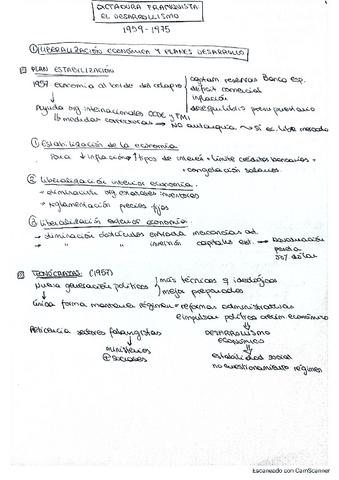 DICTADURA FRANQUISTA
EL DESARROLLISMO
1959-1975
① LIBERALIZACIÓN ECONÓMICA Y PLANES DESARROLLO
PLAN ESTABILIZACIÓN
1957 economía al borde del colapso
reservas Banco Esp.
déficit comercial
inflación
desequilibrio presupuestario
Ayuda org internacionales OCDE y FMI
↳ medidas correctoras → NO autarquía → Sí ec. libre mercado
① Estabilización de la economía
↓ inflación ↑ tipos de interés + límite créditos bancarios +
+ congelación salarios
② Liberalización interior economía
- eliminación org estatales
- reglamentación precios fijos
③ Liberalización exterior economía
- eliminación obstáculos entrada mercancías ext.
- " " inversión capitales ext. → Devaluación
peseta
dólar
TECNÓCRATAS: (1957)
Nueva generación políticos
más técnicos q ideólogos
mejor preparados
única forma mantener régimen = reformas administrativas
e impulsar política crecim. económico
Reticencia sectores falangistas
DESARROLLISMO
ECONÓMICO
ministerios
sociales
estabilidad social
no cuestionamiento régimen
Escaneado con CamScanner